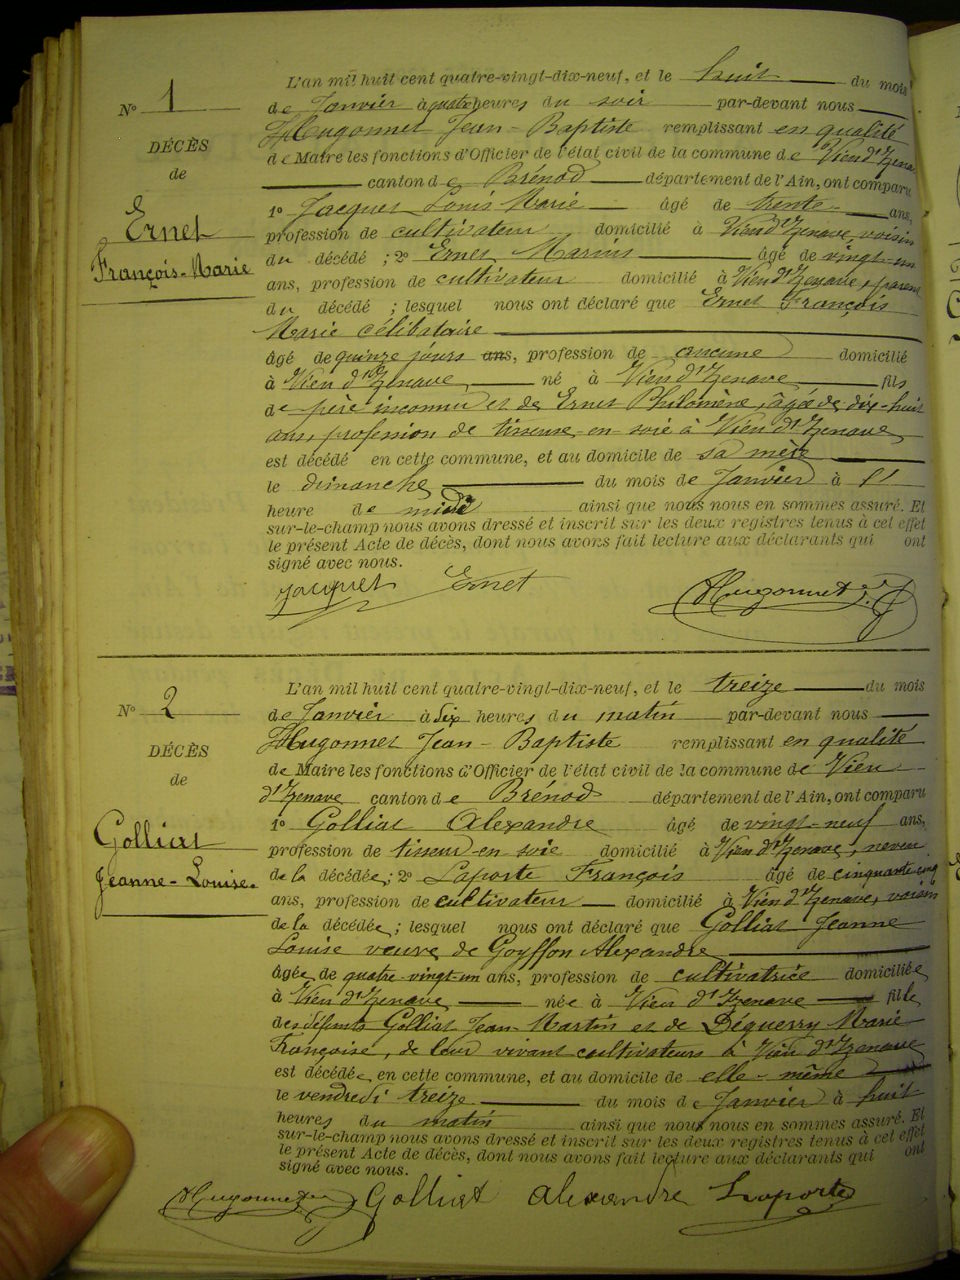 L'an mil huit cent quatre-vingt-dix-neuf, et le huit du mois
N° 1
de Janvier à quatre heures du soir par-devant nous
Hugonnet Jean-Baptiste remplissant en qualité
DÉCÈS
de Maire les fonctions d'Officier de l'état civil de la commune de Vieu d'Izenave
de
canton de Brénod département de l'Ain, ont comparu
1° Jacquet Louis Marie âgé de trente ans,
Ernet
profession de cultivateur domicilié à Vieu d'Izenave, voisin
du décédé ; 2° Ernet Marius âgé de vingt-un
François-Marie
ans, profession de cultivateur domicilié à Vieu d'Izenave, parent
du décédé ; lesquel nous ont déclaré que Ernet François
Marie célibataire
âgé de quinze jours ans, profession de aucune domicilié
à Vieu d'Izenave né à Vieu d'Izenave fils
de père inconnu et de Ernet Philomène, âgée de dix-huit
ans, profession de tisseuse en soie à Vieu d'Izenave
est décédé en cette commune, et au domicile de sa mère
le dimanche du mois de Janvier à
heure de midi ainsi que nous nous en sommes assuré. Et
sur-le-champ nous avons dressé et inscrit sur les deux registres tenus à cet effet
le présent Acte de décès, dont nous avons fait lecture aux déclarants qui ont
signé avec nous.
Jacquet Ernet Hugonnet J.
L'an mil huit cent quatre-vingt-dix-neuf, et le treize du mois
N° 2
de Janvier à dix heures du matin par-devant nous
Hugonnet Jean-Baptiste remplissant en qualité
DÉCÈS
de Maire les fonctions d'Officier de l'état civil de la commune de Vieu
de
d'Izenave canton de Brénod département de l'Ain, ont comparu
1° Golliat Alexandre âgé de vingt-neuf ans,
Golliat
profession de tisseur en soie domicilié à Vieu d'Izenave, neveu
de la décédée ; 2° Laporte François âgé de cinquante cinq
Jeanne-Louise.
ans, profession de cultivateur domicilié à Vieu d'Izenave, voisin
de la décédée ; lesquel nous ont déclaré que Golliat Jeanne
Louise veuve de Goyffon Alexandre
âgée de quatre-vingt-un ans, profession de cultivatrice domiciliée
à Vieu d'Izenave née à Vieu d'Izenave fille
des défunts Golliat Jean-Martin et de Déguerry Marie
Françoise, de leur vivant cultivateurs à Vieu d'Izenave
est décédée en cette commune, et au domicile de elle-même
le vendredi treize du mois de Janvier à huit
heures du matin ainsi que nous nous en sommes assuré. Et
sur-le-champ nous avons dressé et inscrit sur les deux registres tenus à cet effet
le présent Acte de décès, dont nous avons fait lecture aux déclarants qui ont
signé avec nous.
Hugonnet Golliat Alexandre Laporte